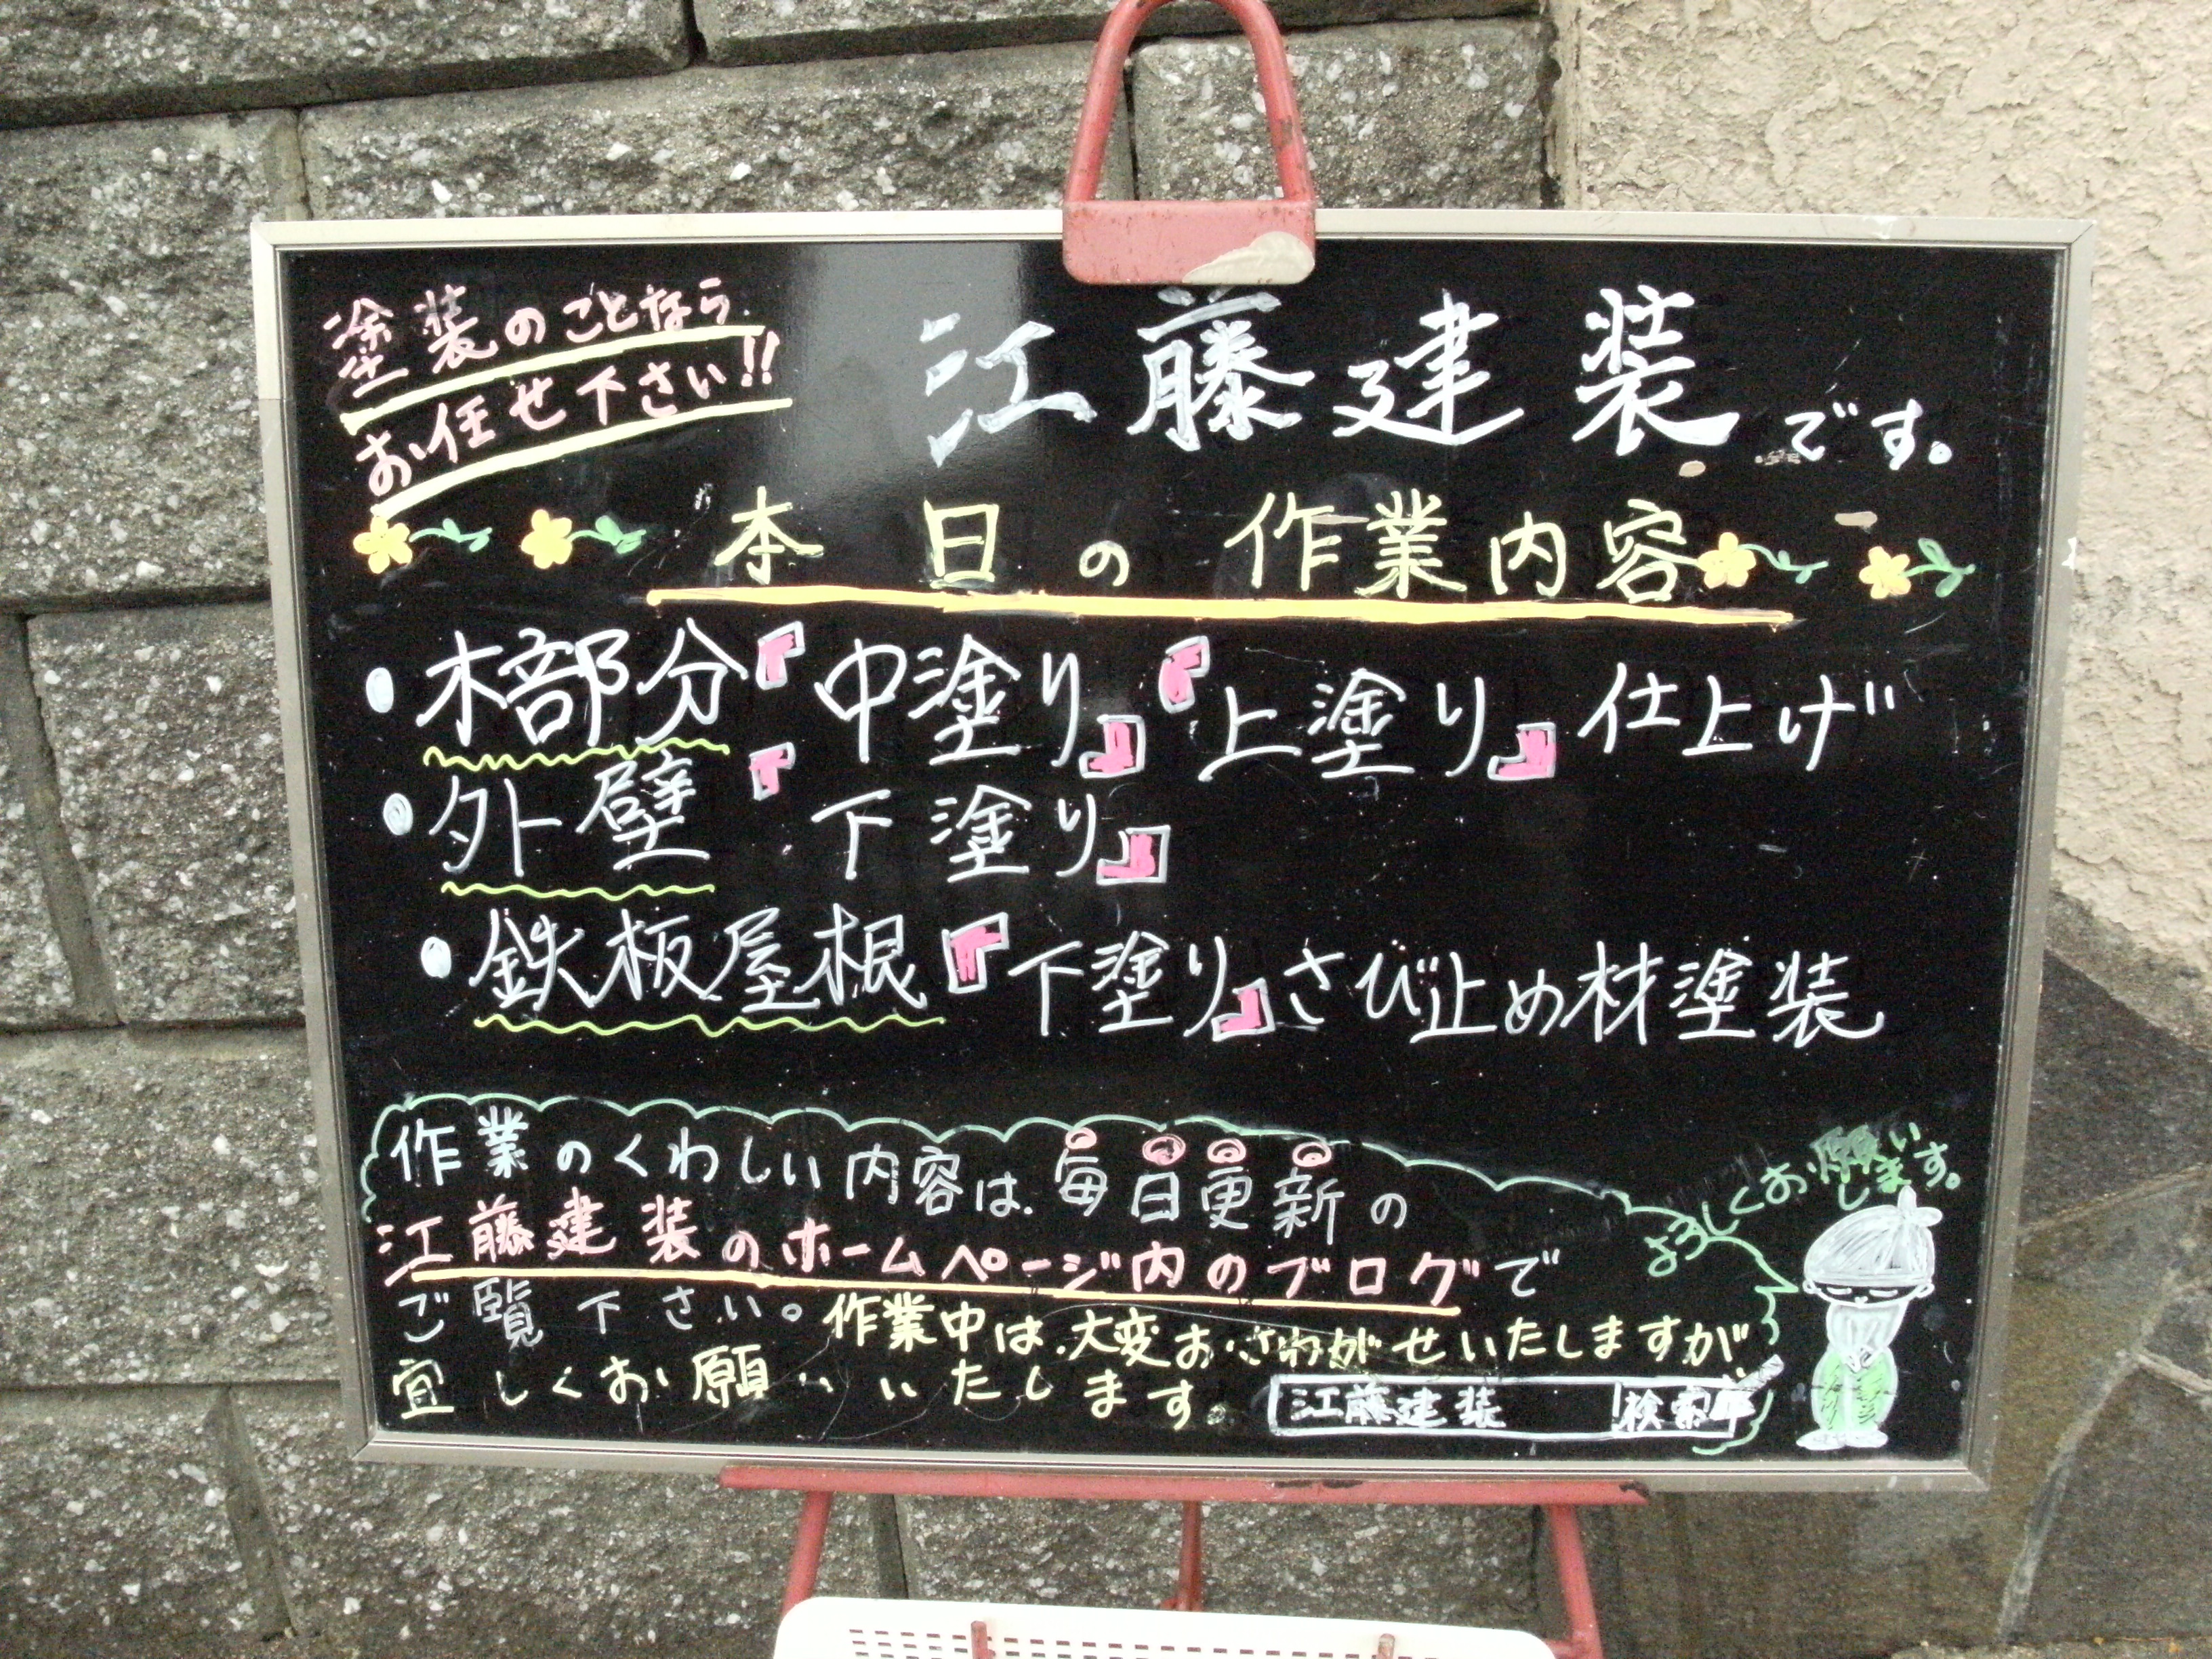 塗装のことなら
お任せ下さい!!
江藤建装です。
本日の作業内容
●木部分『中塗り』『上塗り』仕上げ
●外壁『下塗り』
●鉄板屋根『下塗り』さび止め材塗装
作業のくわしい内容は毎日更新の
江藤建装のホームページ内のブログで
ご覧下さい。作業中は大変おさわがせいたしますが
宜しくお願いいたします。
江藤建装 検索
よろしくお願い
します。